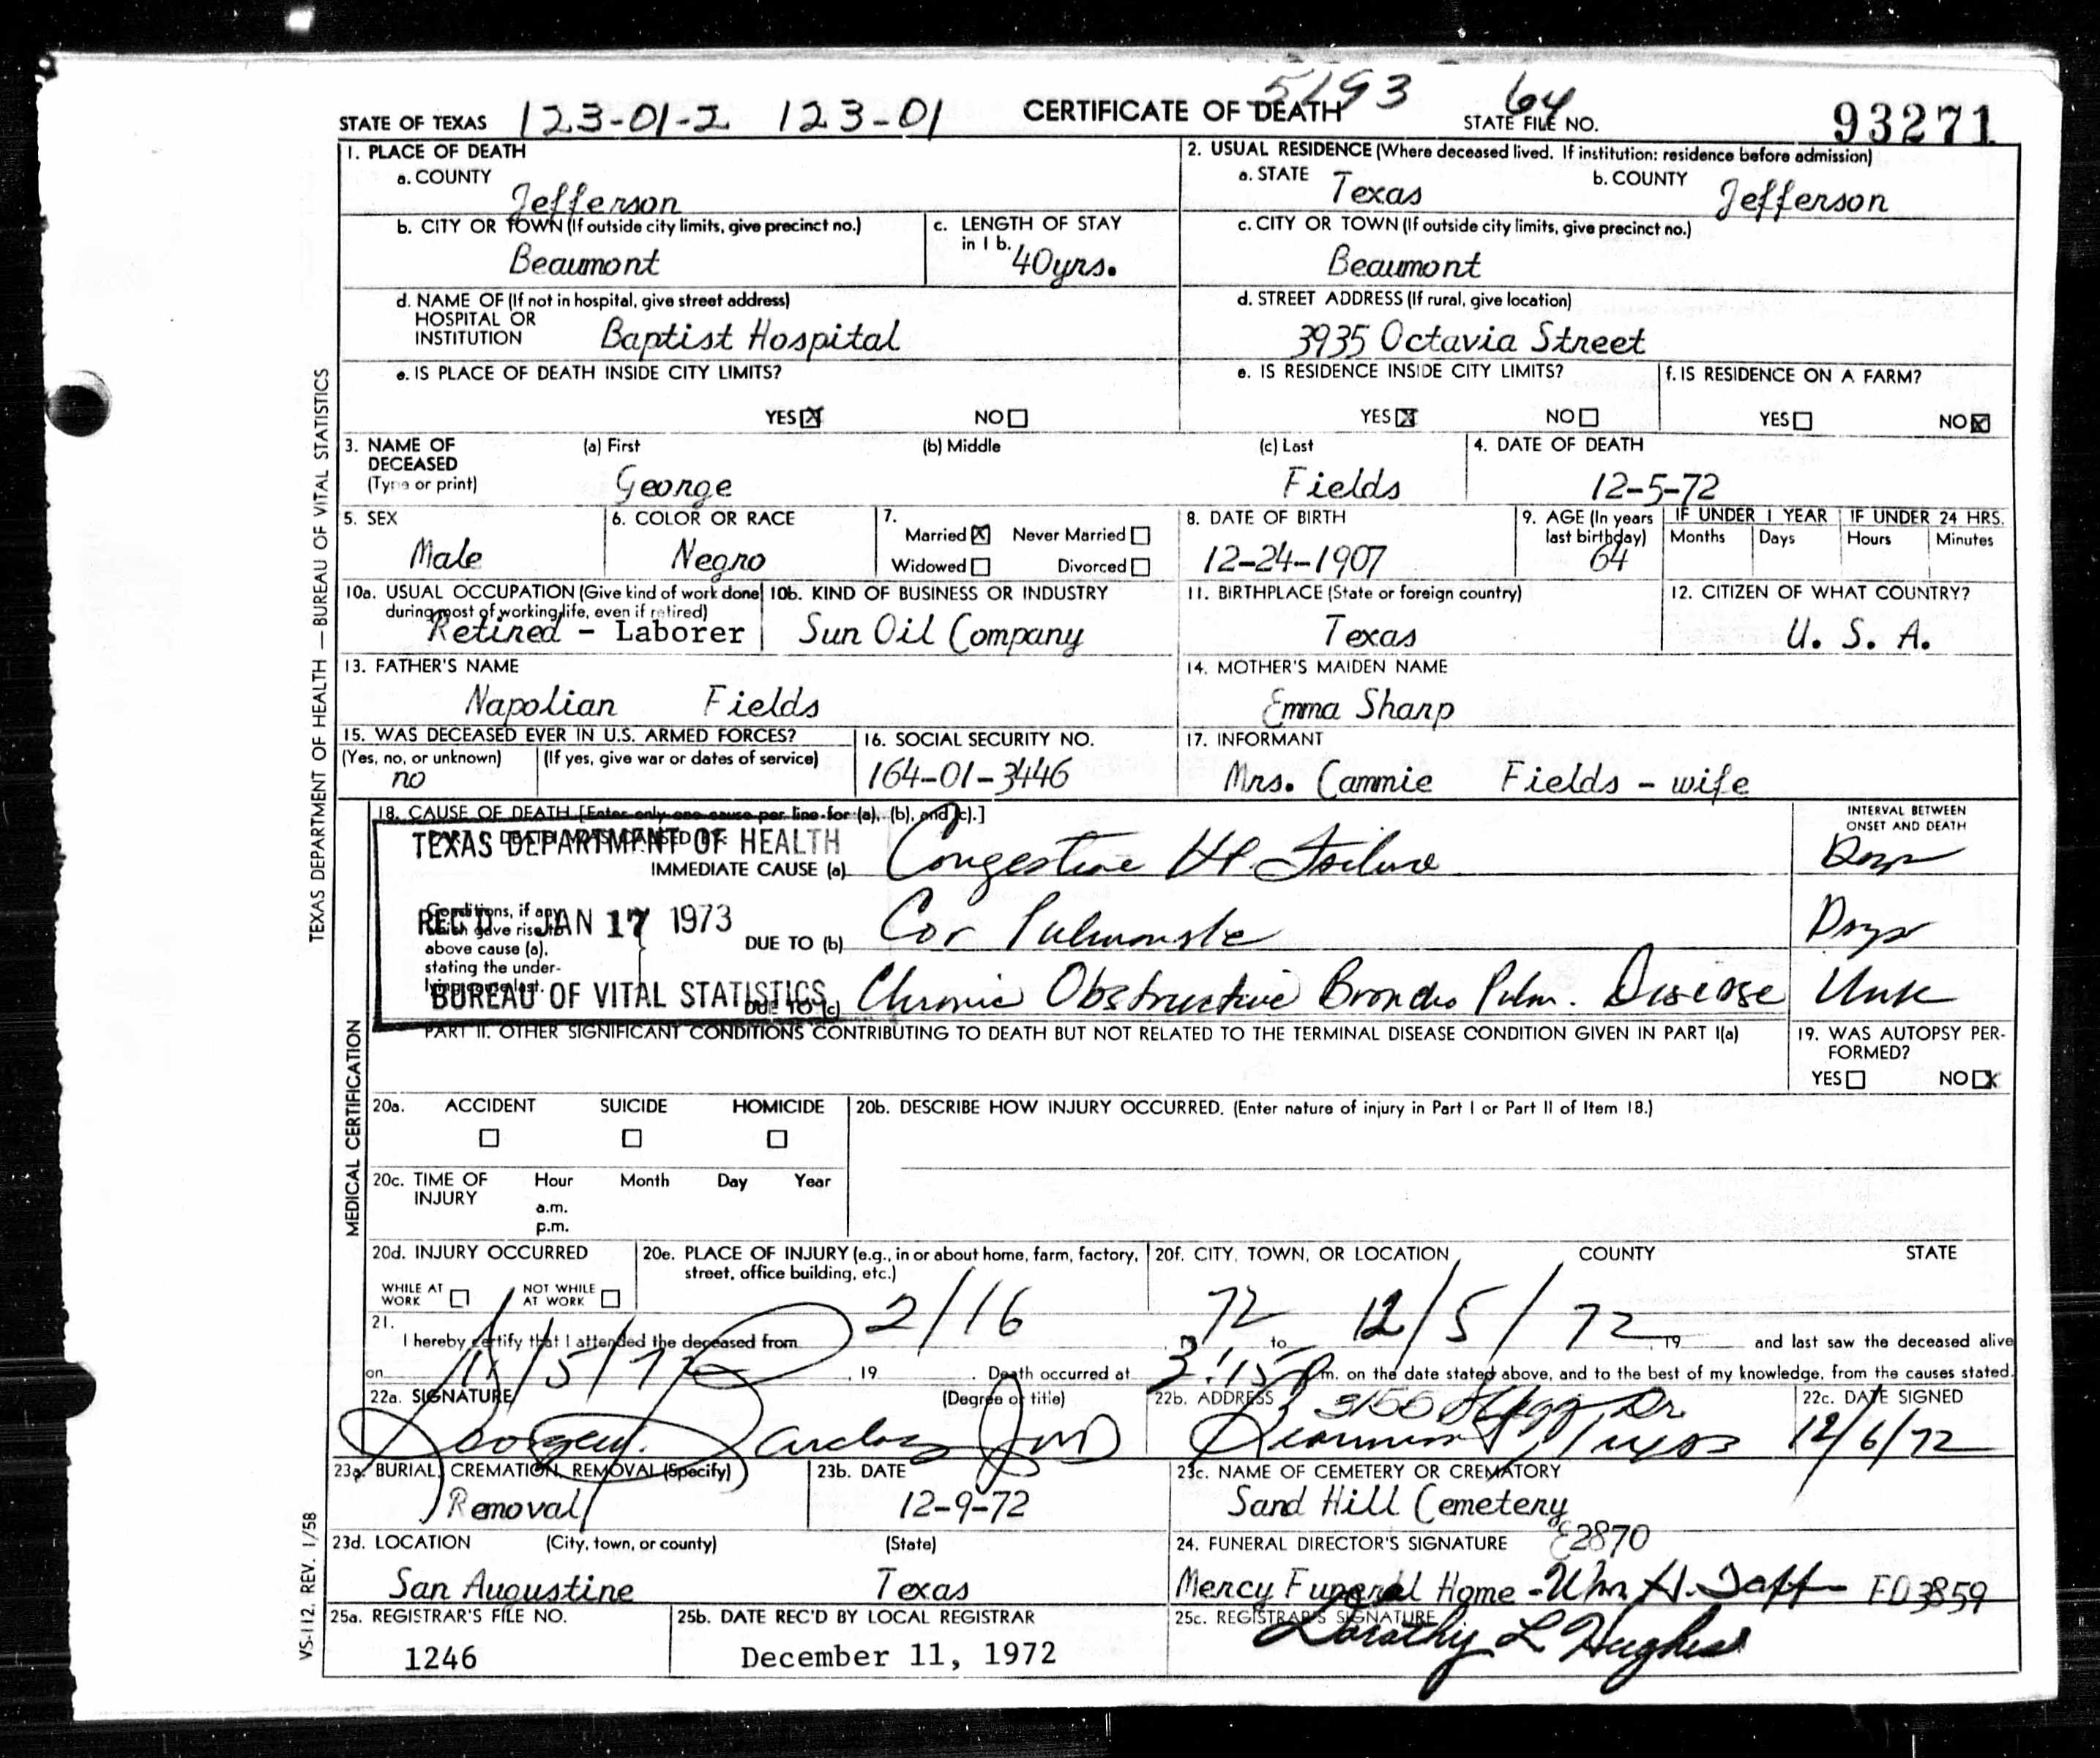 5193 64
STATE OF TEXAS 123-01-2 123-01 CERTIFICATE OF DEATH STATE FILE NO. 93271
1. PLACE OF DEATH
a. COUNTY
Jefferson
2. USUAL RESIDENCE (Where deceased lived. If institution: residence before admission)
a. STATE Texas b. COUNTY Jefferson
b. CITY OR TOWN (If outside city limits, give precinct no.)
Beaumont
c. LENGTH OF STAY
in 1 b. 40yrs.
c. CITY OR TOWN (If outside city limits, give precinct no.)
Beaumont
d. NAME OF (If not in hospital, give street address)
HOSPITAL OR
INSTITUTION Baptist Hospital
d. STREET ADDRESS (If rural, give location)
3935 Octavia Street
e. IS PLACE OF DEATH INSIDE CITY LIMITS?
YES ☒ NO ☐
e. IS RESIDENCE INSIDE CITY LIMITS?
YES ☒ NO ☐
f. IS RESIDENCE ON A FARM?
YES ☐ NO ☒
3. NAME OF
DECEASED
(Type or print)
(a) First (b) Middle (c) Last
George Fields
4. DATE OF DEATH
12-5-72
5. SEX
Male
6. COLOR OR RACE
Negro
7.
Married ☒ Never Married ☐
Widowed ☐ Divorced ☐
8. DATE OF BIRTH
12-24-1907
9. AGE (In years
last birthday)
64
IF UNDER 1 YEAR
Months Days
IF UNDER 24 HRS.
Hours Minutes
10a. USUAL OCCUPATION (Give kind of work done
during most of working life, even if retired)
Retired - Laborer
10b. KIND OF BUSINESS OR INDUSTRY
Sun Oil Company
11. BIRTHPLACE (State or foreign country)
Texas
12. CITIZEN OF WHAT COUNTRY?
U. S. A.
13. FATHER'S NAME
Napolian Fields
14. MOTHER'S MAIDEN NAME
Emma Sharp
15. WAS DECEASED EVER IN U.S. ARMED FORCES?
(Yes, no, or unknown) (If yes, give war or dates of service)
no
16. SOCIAL SECURITY NO.
164-01-3446
17. INFORMANT
Mrs. Cammie Fields - wife
18. CAUSE OF DEATH [Enter only one cause per line for (a), (b), and (c).]
INTERVAL BETWEEN
ONSET AND DEATH
TEXAS DEPARTMENT OF HEALTH
IMMEDIATE CAUSE (a) Congestive Ht Failure Days
REC'D JAN 17 1973
Conditions, if any
which gave rise to
above cause (a),
stating the under-
lying cause last.
DUE TO (b) Cor Pulmonale Days
BUREAU OF VITAL STATISTICS
DUE TO (c) Chronic Obstructive Broncho Pulm. Disease Unk
PART II. OTHER SIGNIFICANT CONDITIONS CONTRIBUTING TO DEATH BUT NOT RELATED TO THE TERMINAL DISEASE CONDITION GIVEN IN PART I(a)
19. WAS AUTOPSY PER-
FORMED?
YES ☐ NO ☒
20a. ACCIDENT SUICIDE HOMICIDE
☐ ☐ ☐
20b. DESCRIBE HOW INJURY OCCURRED. (Enter nature of injury in Part I or Part II of Item 18.)
20c. TIME OF
INJURY
Hour Month Day Year
a.m.
p.m.
20d. INJURY OCCURRED
WHILE AT
WORK ☐
NOT WHILE
AT WORK ☐
20e. PLACE OF INJURY (e.g., in or about home, farm, factory,
street, office building, etc.)
20f. CITY, TOWN, OR LOCATION COUNTY STATE
21.
I hereby certify that I attended the deceased from 2/16 72 to 12/5/72, 19 and last saw the deceased alive
on 11/5/72, 19 . Death occurred at 3:15 P.m. on the date stated above, and to the best of my knowledge, from the causes stated.
22a. SIGNATURE (Degree or title)
22b. ADDRESS
Dr.
Beaumont, Texas
22c. DATE SIGNED
12/6/72
23a. BURIAL, CREMATION, REMOVAL (Specify)
Removal
23b. DATE
12-9-72
23c. NAME OF CEMETERY OR CREMATORY
Sand Hill Cemetery
23d. LOCATION (City, town, or county) (State)
San Augustine Texas
24. FUNERAL DIRECTOR'S SIGNATURE 2870
Mercy Funeral Home - Wm H. FD3859
25a. REGISTRAR'S FILE NO.
1246
25b. DATE REC'D BY LOCAL REGISTRAR
December 11, 1972
25c. REGISTRAR'S SIGNATURE
Dorathy L Hughes
TEXAS DEPARTMENT OF HEALTH — BUREAU OF VITAL STATISTICS
MEDICAL CERTIFICATION
VS-112, REV. 1/58